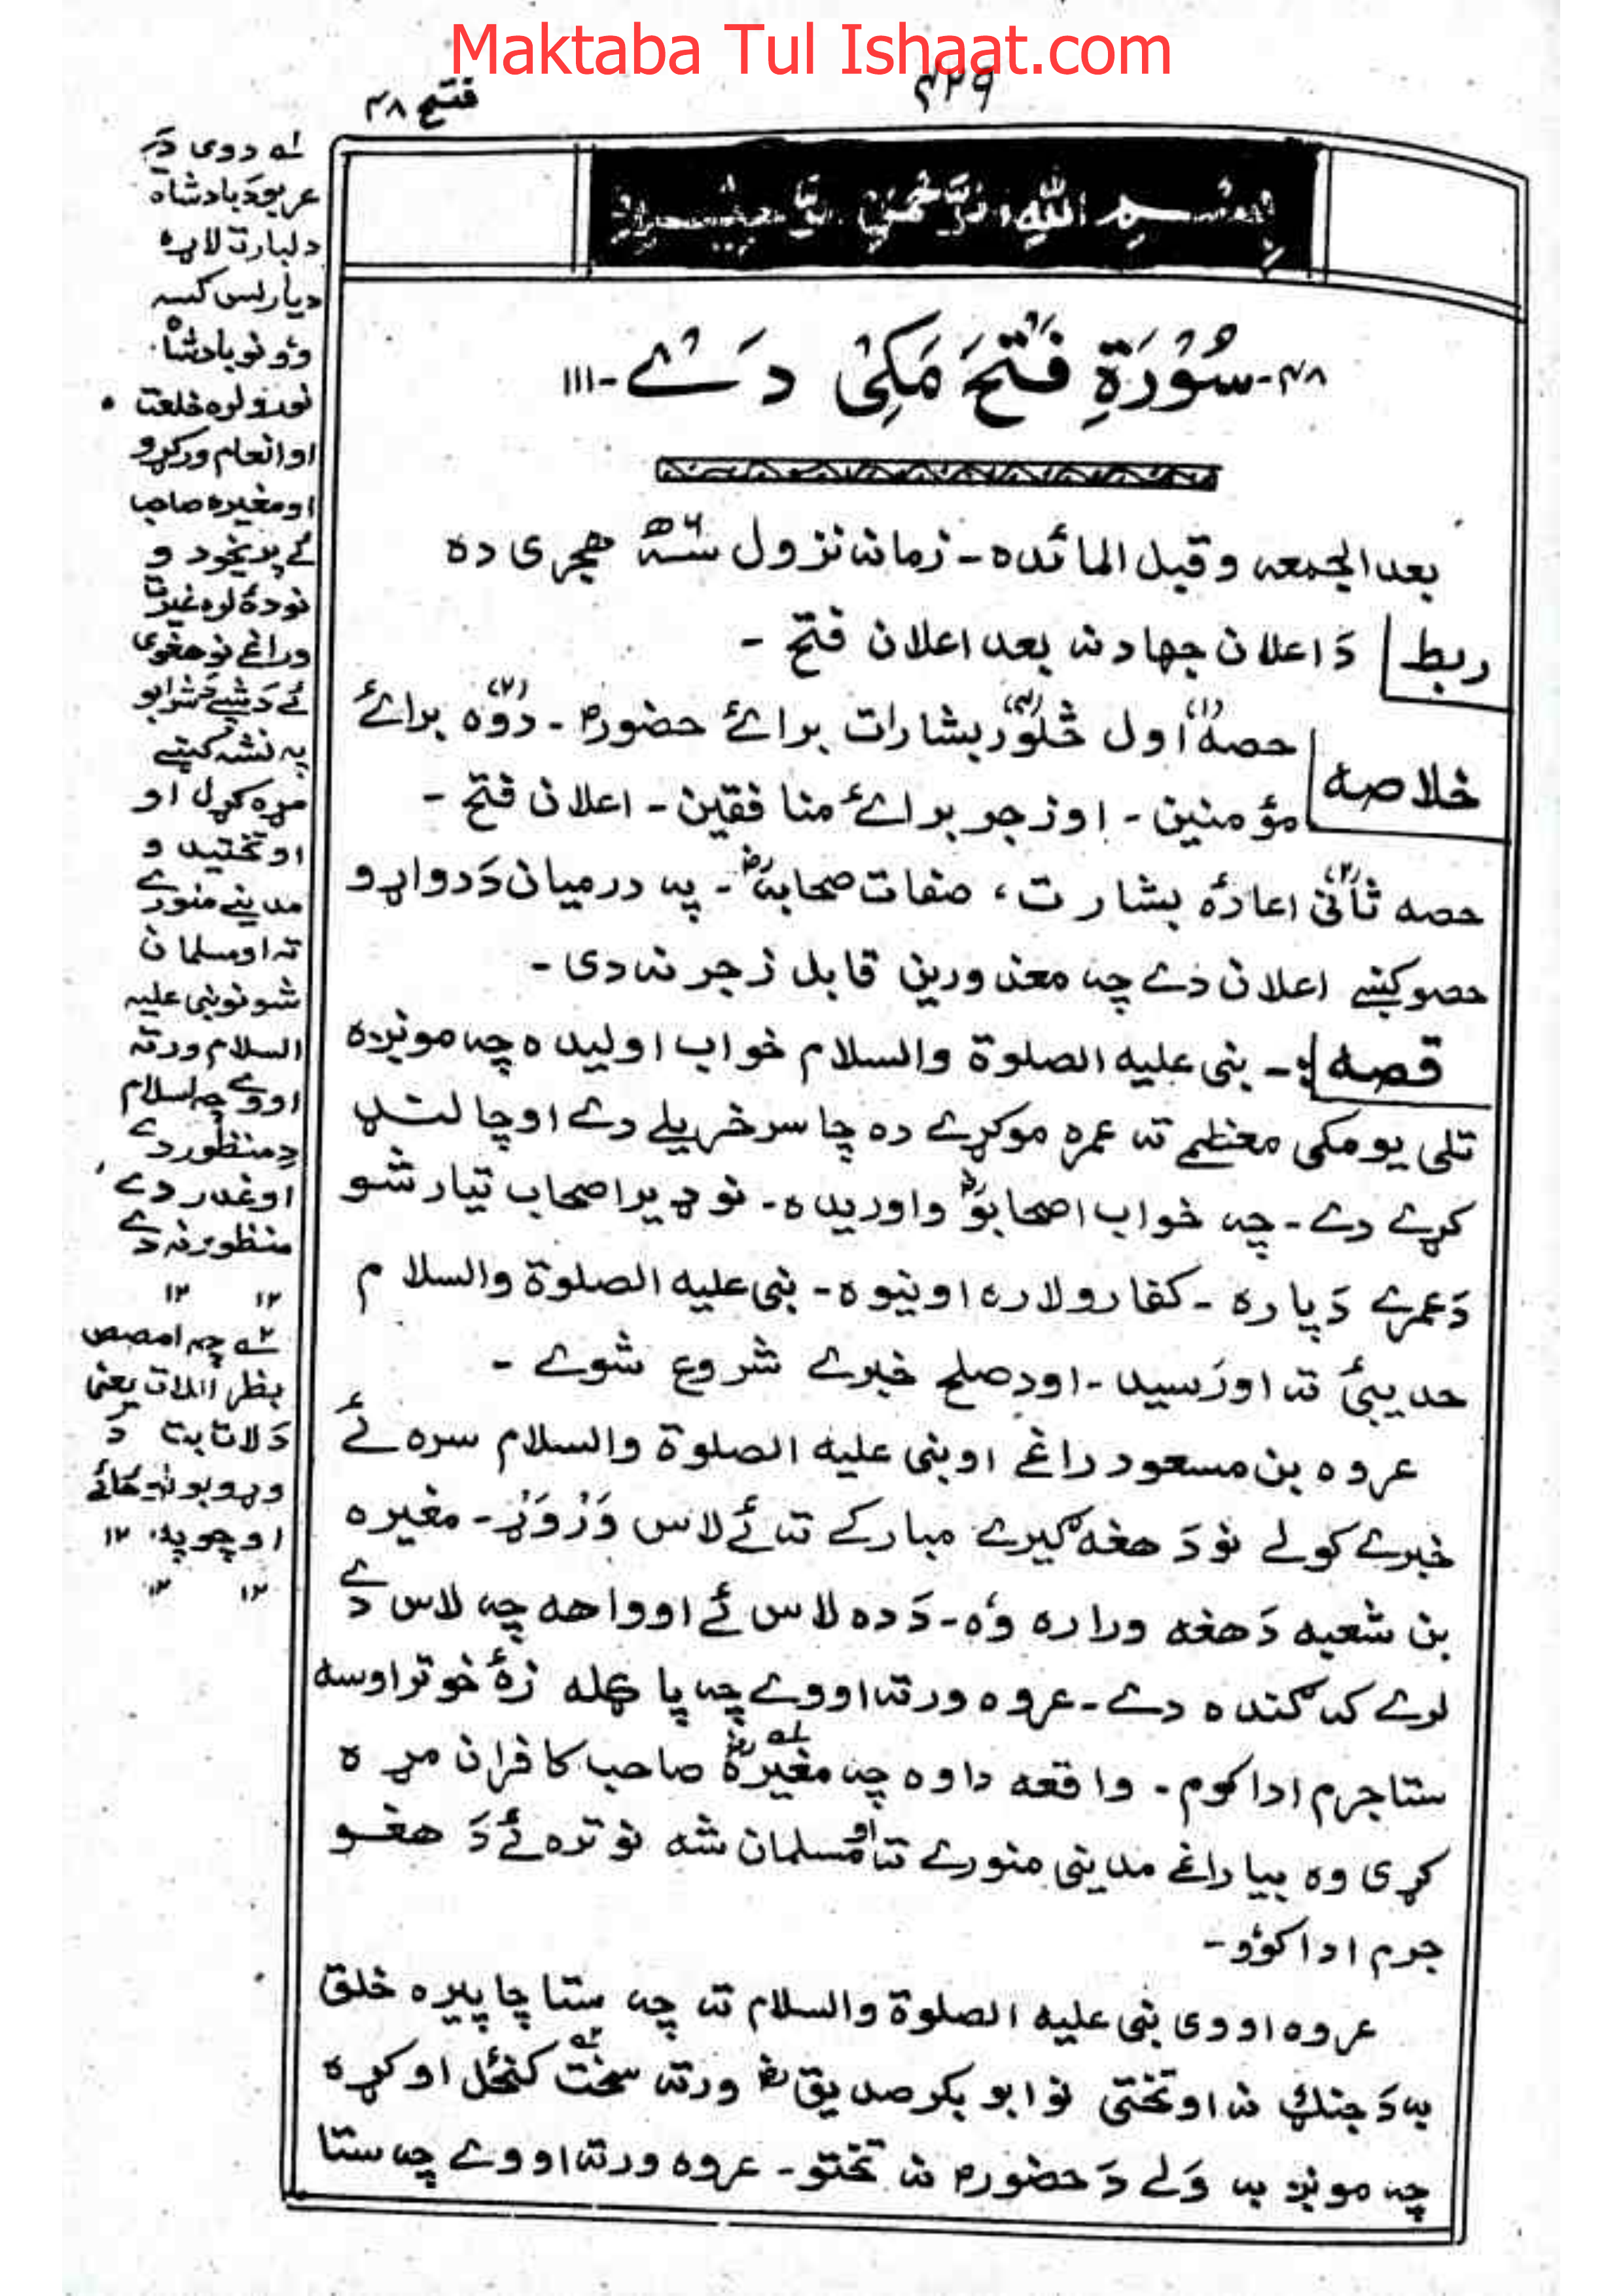 Maktaba Tul Ishaat.com
۴۲۹
فتح ۴۸
بِسْمِ اللهِ الرَّحْمٰنِ الرَّحِيْمِ
۴۸-سُوْرَةِ فَتْحَ مَکِیْ دَےْ-۱۱۱
بعد الجمعه وقبل المائده - زمانه نزول سنه ۶ھ هجری ده
ربط
دَ اعلان جهاد نه بعد اعلان فتح -
خلاصه
حصهٔ اول (۱) څلور (۴) بشارات برائے حضورم - دوه (۲) برائے
مؤمنین - اوزجر برائے منافقین - اعلان فتح -
حصه ثانی (۲) اعادهٔ بشارت، صفات صحابهؓ - په درمیان دَ دواړو
حصو کښے اعلان دے چه معذورین قابل زجر نه دی -
قصه :- نبی علیه الصلوة والسلام خواب اولیده چه مونږه
تلی یو مکی معظمے ته عمره موکړے ده چا سر خریلے دے اوچا لنډ
کړے دے - چه خواب اصحابوؓ واوریده - نو ډیر اصحاب تیار شو
دَ عمرے دَ پاره - کفارو لاره اونیوه - نبی علیه الصلوة والسلام
حدیبئ ته اورَسید - اود صلح خبرے شروع شوے -
عروه بن مسعود راغے او نبی علیه الصلوة والسلام سره ئے
خبرے کولے نو دَ هغه ګیرے مبارکے ته ئے لاس وَرْوَړ - مغیره
بن شعبه دَ هغه وراره وه - دَ ده لاس ئے اوواهه چه لاس دے
لرے که ګنده دے - عروه ورته اووے چه پاګله زهٔ خو تراوسه
ستا جرم ادا کوم - واقعه داوه چه مغیرةؓ لـه صاحب کافران مړه
کړی وه بیا راغے مدینی منورے ته او مسلمان شه نو تره ئے دَ هغو
جرم ادا کوؤ -
عروه اووی نبی علیه الصلوة والسلام ته چه ستا چاپیره خلق
به دَ جنګ نه اوتختی نو ابوبکر صدیقؓ ورته سخت کنځل اوکړه
چه مونږ به وَلے دَ حضورم نه تختو - عروه ورته اووے چه ستا
لـه دوی دَ
عربو دَ بادشاه
دلبار ته لاړه
دیارلس کسه
وؤ نو بادشاه
نورو لره خلعت
او انعام ورکړو
او مغیره صاحب
ئے پریخود و
نو دهٔ لره غیرت
وراغے نو هغوی
ئے دَ شپے دَ شرابو
په نشه کښے
مړه کړل او
اوتختید و
مدینے منورے
ته او مسلمان
شو نو نبی علیه
السلام ورته
اووے چه اسلام
دِ منظور دے
او غدر دے
منظور نه دے
۱۲ ۱۲
۲ـه چه امصص
بظر اللات یعنی
دَ لات بت دَ
وړو بولو ځائے
اوچوپه ۱۲
۱۲ ۱۲